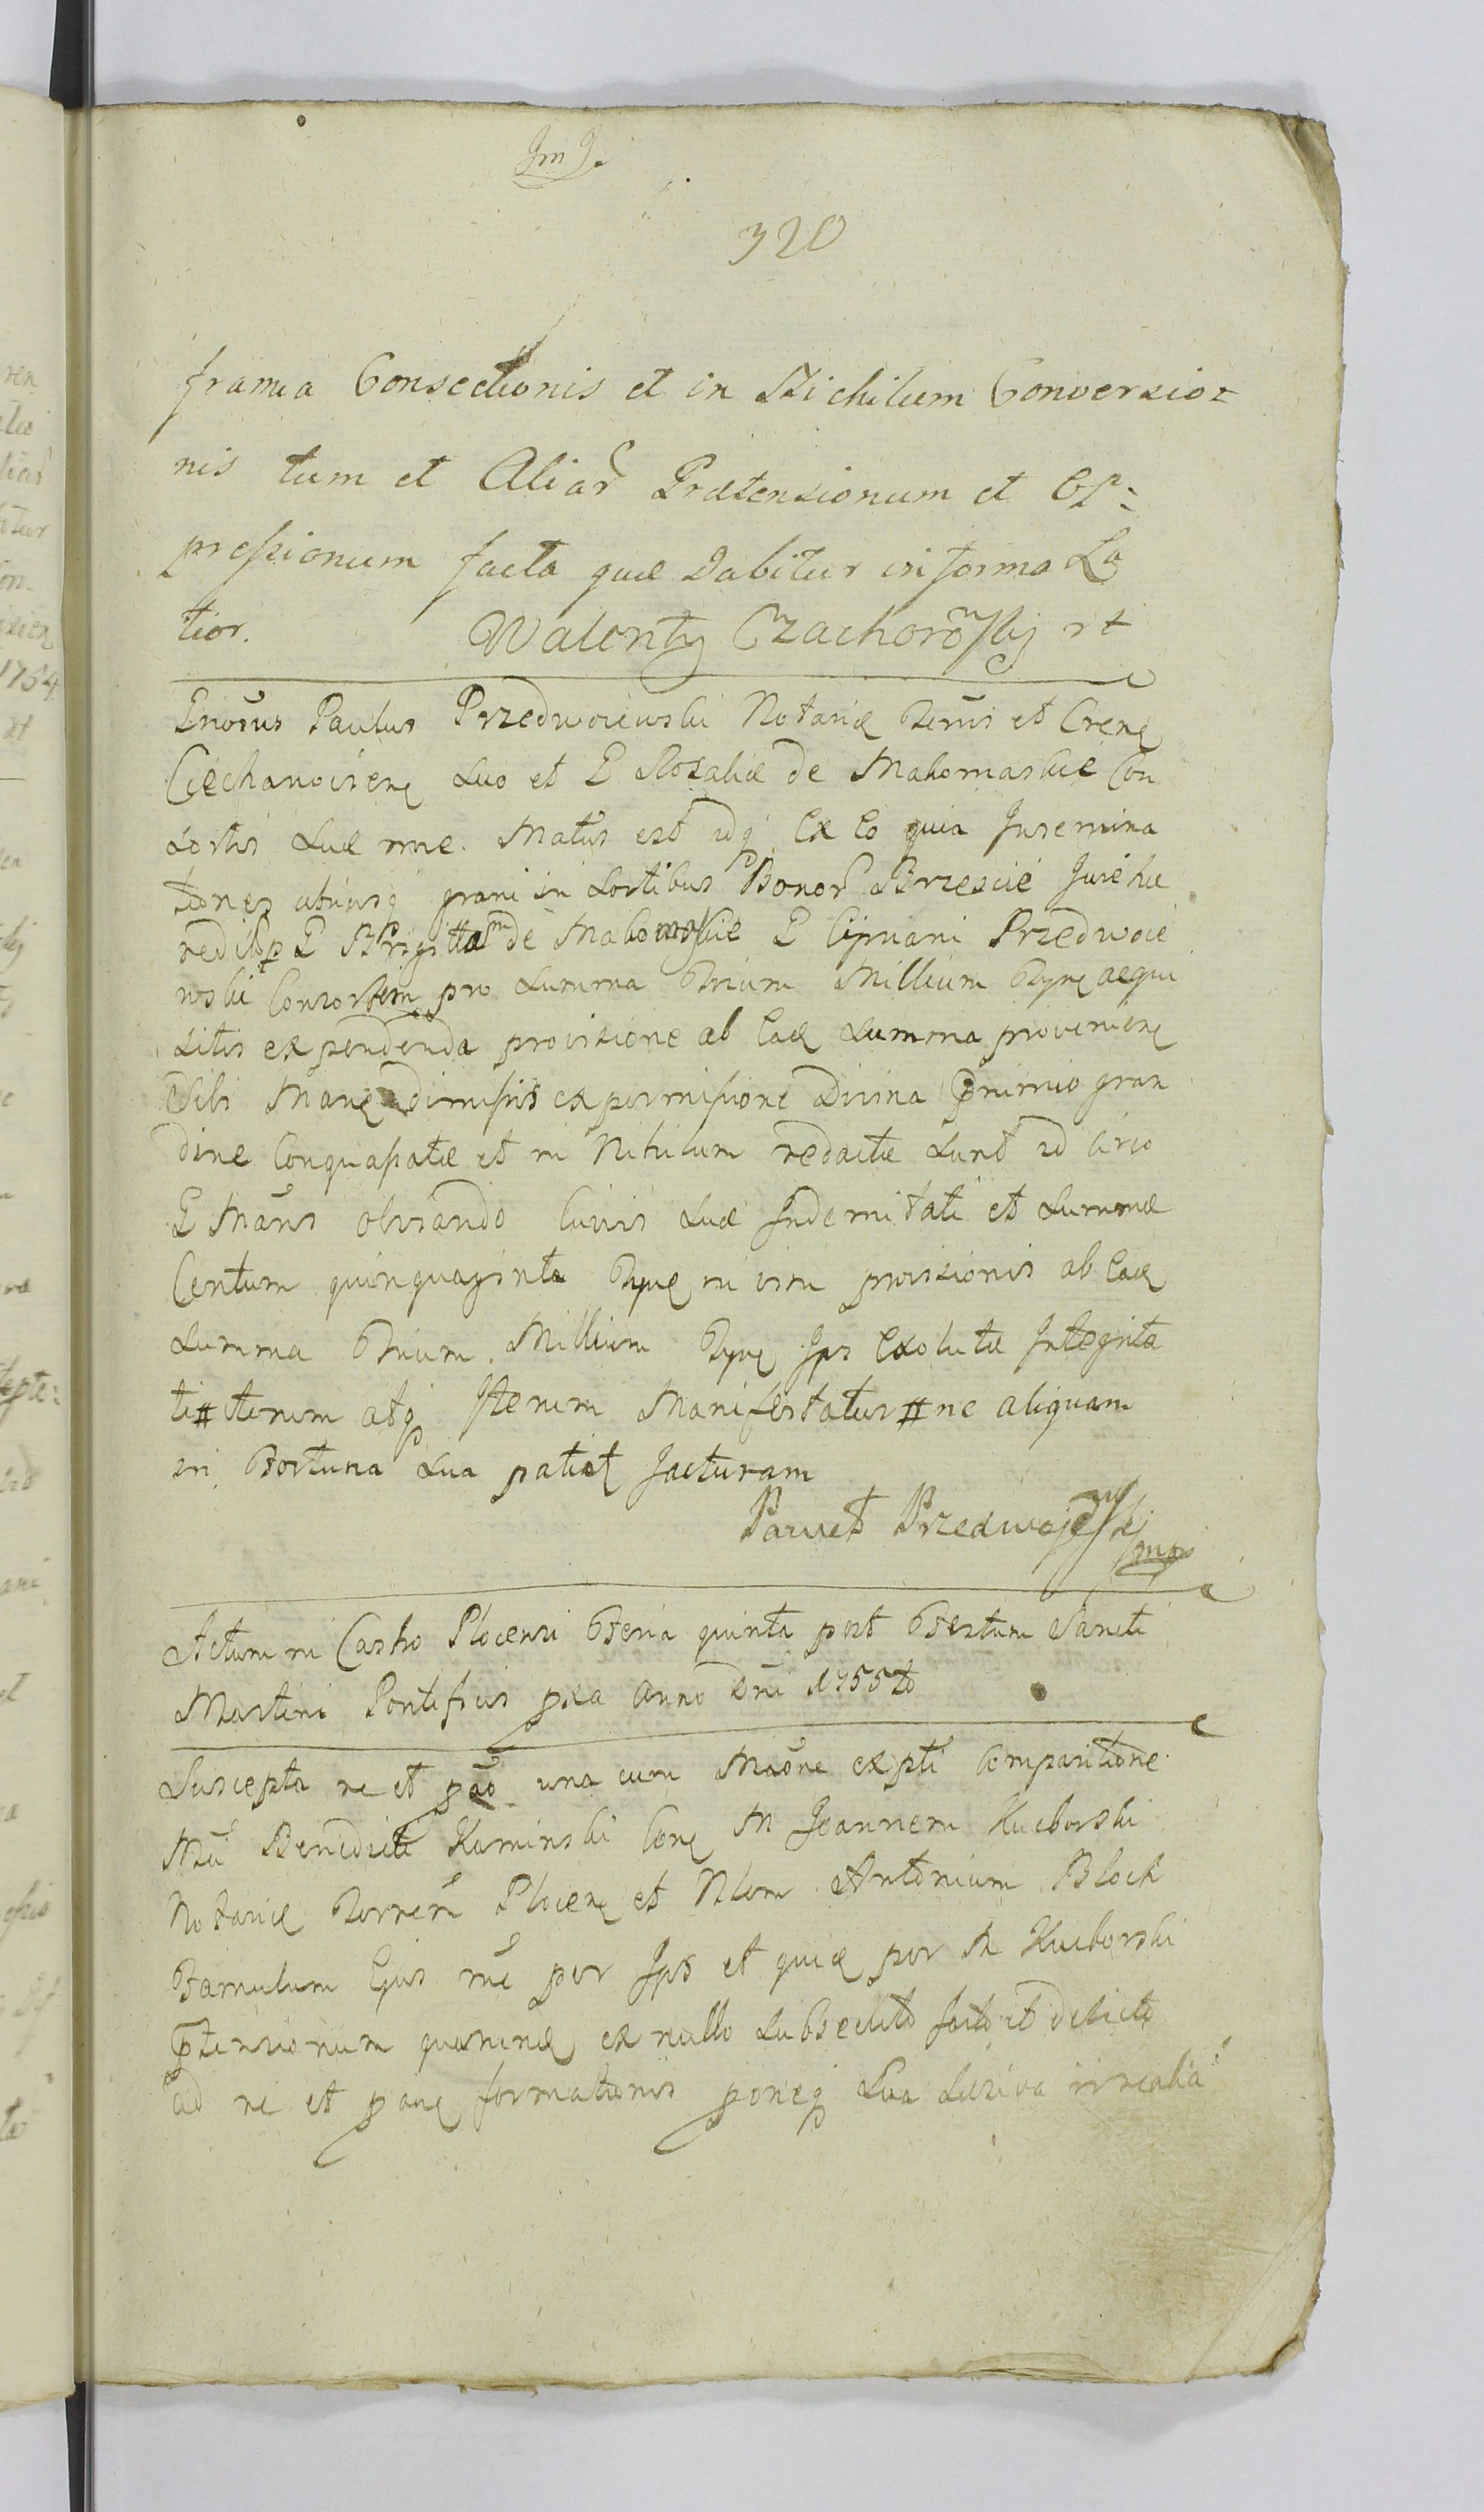 Jm J.
320
framea Consectionis et in Nichilum Conversio=
nis tum et Aliar Prætensionum et Op=
preſsionum facta quæ dabitur in forma La
tior. Walenty Czachorowſkij rt
Gnosus Paulus Przedwoiewski Notariæ Terris et Crenę
Ciechanovienę suo et G Rosaliæ de Makomaskie Con
sortis suæ nne. Matus est idq Ex Eo quia Insemina
tiones utriusq grani in sortibus Bonor Brzescie Jure hæ
redit G Brigittam de Makomaskie G Cipriani Przedwoie
wski Consortem pro summa Trium Millium Tynę acqui
sitis expendenda provisione ab Eadę summa provenienę
Sibi Manę dimissis ex permiſsione Divina nimio gran
dine Conquaſsatæ et in Nihilum redactæ sunt id circo
G Mans obviando suæ Indemnitati et summæ
Centum quinquaginta Tynę in vim provisionis ab Eadę
summa Trium Millium Tynę Jps Exolutæ Integrita
ti # iterum atq Iterum Manifestatur # ne aliquam
in Fortuna sua patiat Jacturam
Paweł Przedwojewſkj
mp
Actum in Castro Plocensi Feria quinta post Festum Sancti
Martini Pontificis pxa Anno Dni 1755to
Suscepta re et pao una cum Maone ex pti Comparitione
Mci Benedicti Kaminski Conę M Joannem Kucborski
Notariæ Terrem Plocenę et Nlem Antonium Block
Famulum Ejus rne per Jps et quiæ per M Kucborski
ptensionum ex nullo subsecuto facto et delicto
ad re et panę formationis ponęq sua